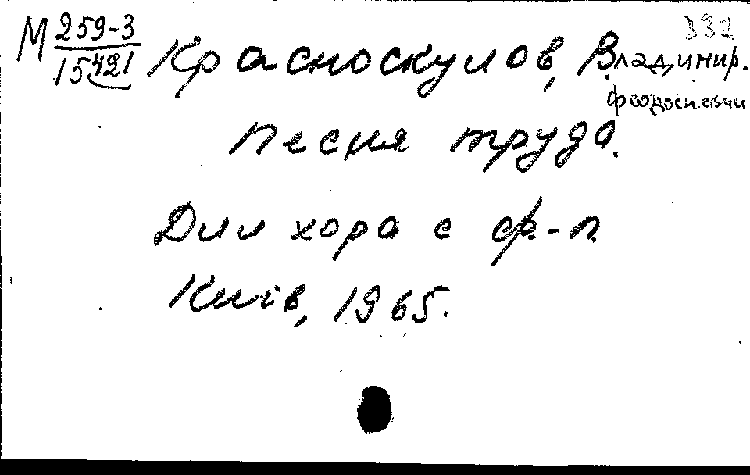 М 259-3 332
15421 Красноскулов, Владимир.
феодосиевич
Песня труда.
Для хора с ф-п
Київ, 1965.